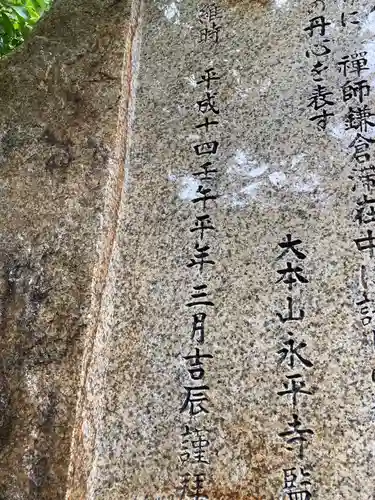 に 禅師鎌倉滞在中に
の丹心を表す
大本山永平寺監
維時 平成十四壬午平年 三月吉辰 謹拜